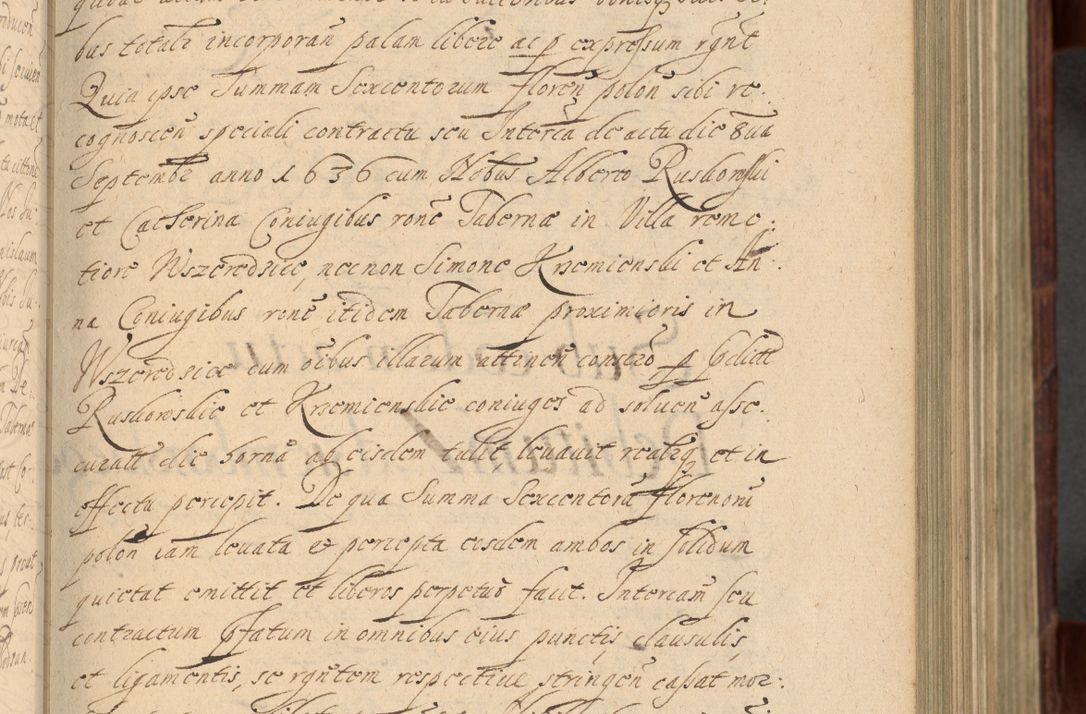 bus totali incorporan̄ palam libere ac p expressum rgn̄t
Quia ipse Summam Sexcentorum floren̄ polon̄ sibi re:
cognoscen̄ speciali contractu seu Interciā de actu die 8ua
Septembr̄ anno 1636 cum Nobus Alberto Ruskowski
et Catherina Coniugibus ronē Tabernæ in Villa remo:
tiore Wszeredsice, necnon Simone Krzemienski et An:
na Coniugibus ronē itidem Tabernæ proximioris in
Wszeredsice cum oibus illarum attinen̄ contrō p Gdictt
Ruskowskie et Krzemienskie coniuges ad soluen̄ asse:
curatt die hornā ab eisdem tulit leuauit realrq et in
effectu percepit. De qua Summa Sexcentorū florenorū
polon̄ iam leuata et percepta eosdem ambos in solidum
quietat emittit et liberos perpetuō facit. Interciam seu
contractum Gfatum in omnibus eius punctis, clausulis,
et ligamentis, se rgn̄tem respectiue stringen̄ cassat mor: